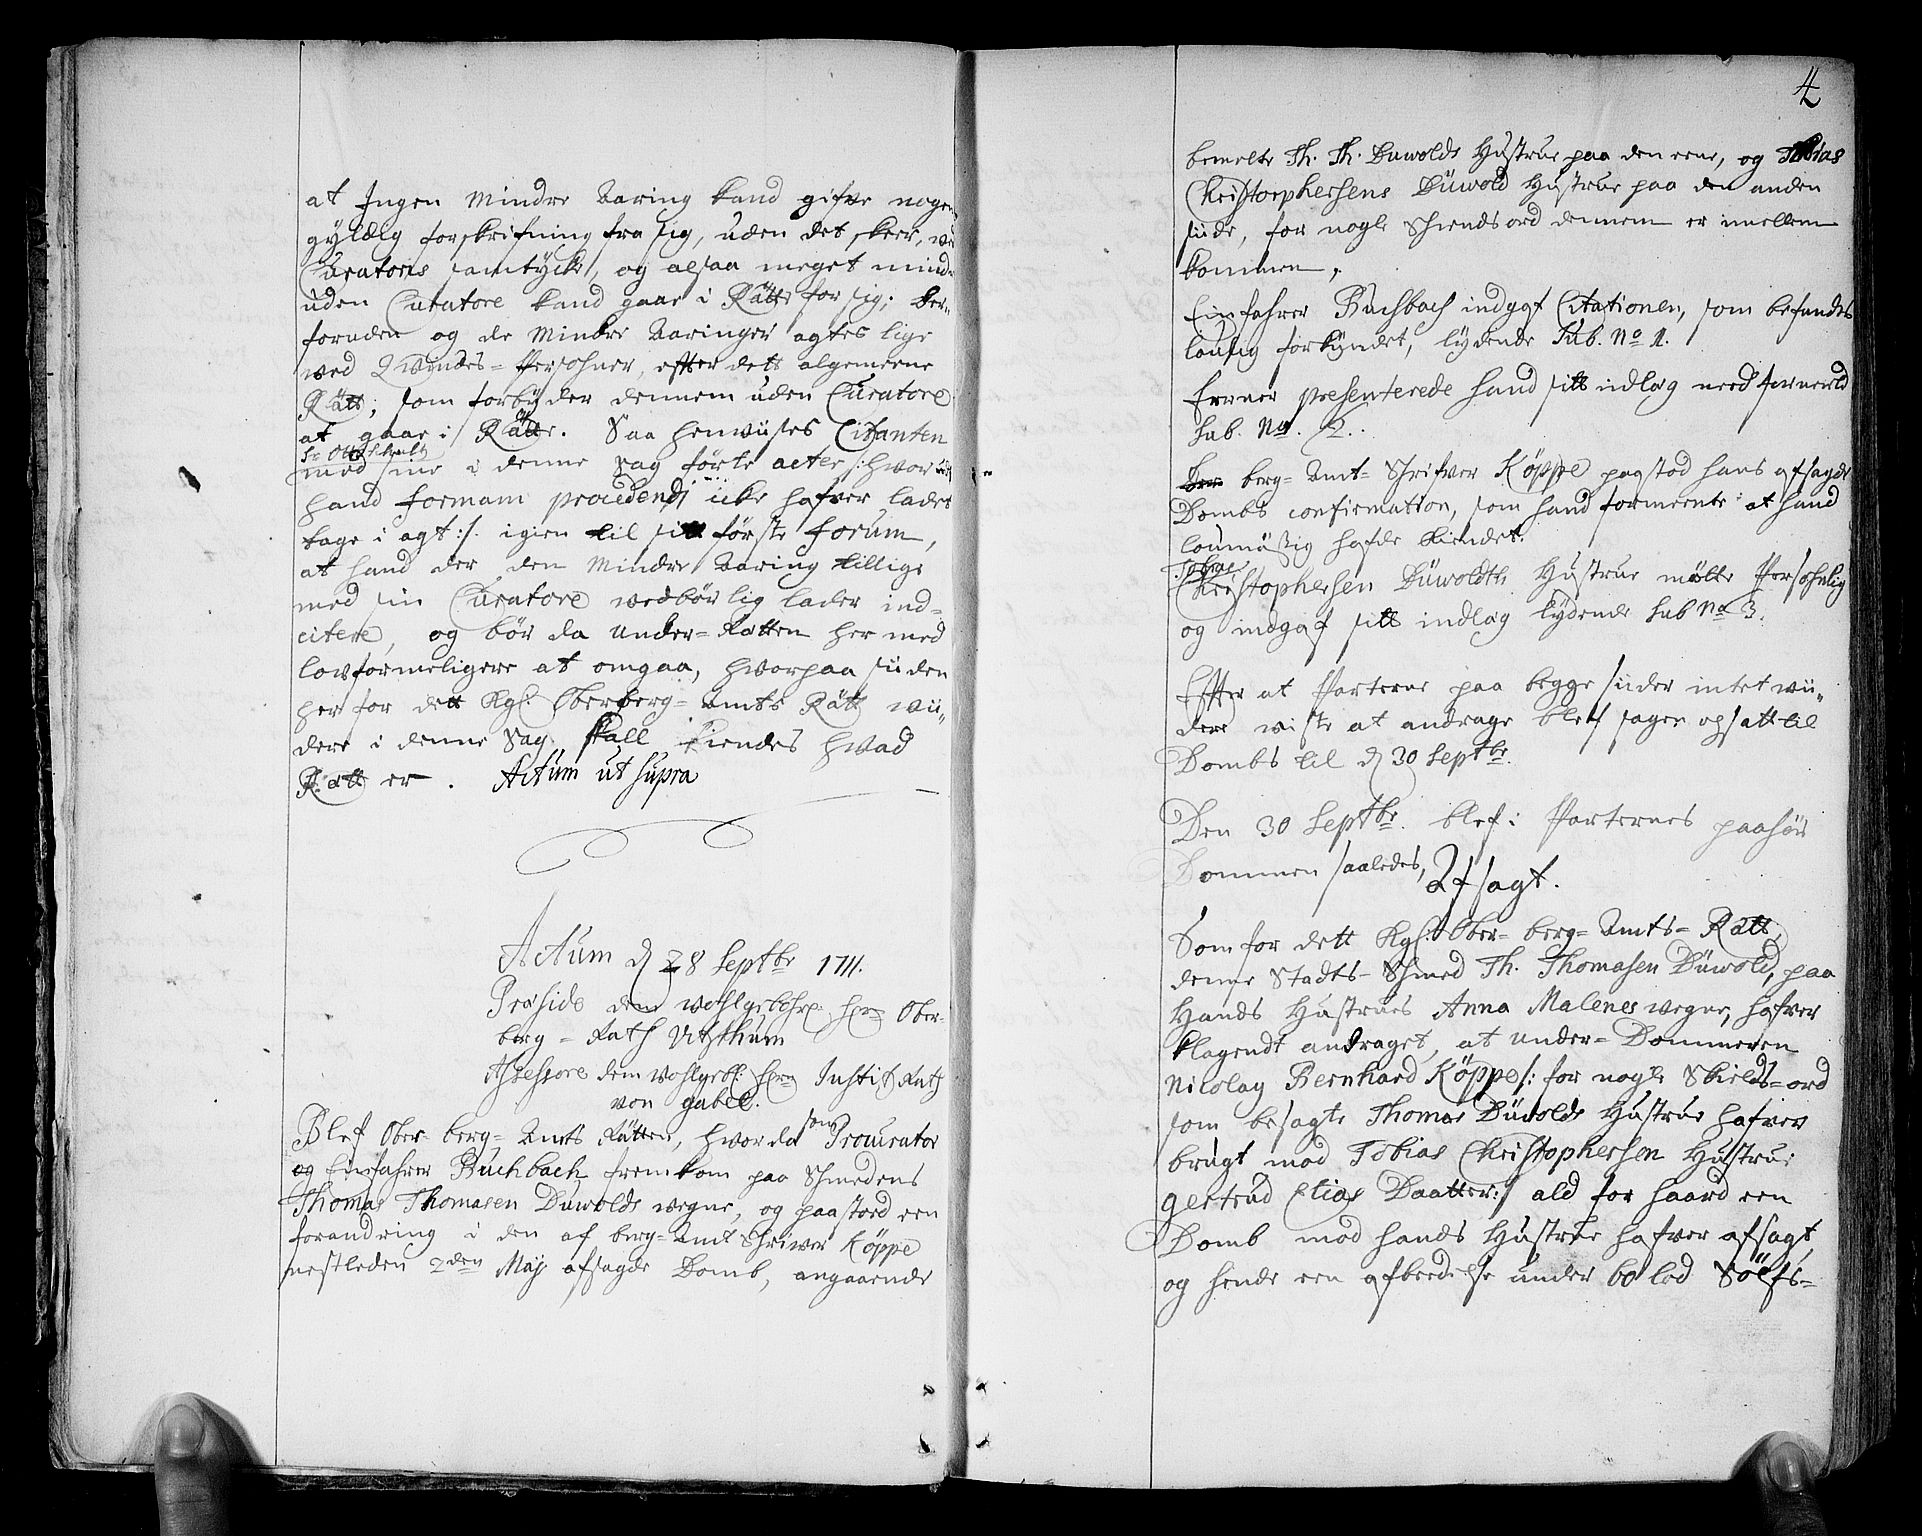 at Ingen Mindre Aaring kand gifve nogen
gyldig forskrifning fra sig, uden det skeer, ved
Curatoris samtycke, og alsaa meget mindre
uden Curatore kand gaae i Rätte for sig; der-
foruden og de Mindre Aaringer agtes lige
ved Qvindes-Persohner, efter dett algemeene
Rätt; som forbyder dennem uden Curatore
at gaae i Rätte. Saa henviises Citanten
Sr Otto Schultz
med sine i denne Sag førte acter /:hvor
hand formam procedendi icke hafver ladet
tage i agt:/. igien til sitt første forum,
at hand der den Mindre Aaring tillige
med sin Curatore vedbörlig lader ind-
citere, og bör da Under-Rätten her med
lovformeligere at omgaa, hvorpaa siiden
her for dett Kgl: Oberberg-Amts Rätt vii-
dere i denne Sag skall kiendes hvad
Rätt er. Actum ut supra
Actum d 28 Septbr 1711.
Præside dem Wohlgebohrn Hrn Ober-
berg-Rath Vitzthum
Assessore dem Wohlgeb: Hrn Justitz Rath
von Gabel.
Blef Ober-berg-Amts Rätten, hvor da som Procurator
og Einfahrer Buchbach fremkom paa Schmedens
Thomas Thomasen Düwolds vegne, og paastoed een
forandring i den af berg-Amt Schriver Köppe
nestleden 2den Maj afsagde Domb, angaaende
4
bemelte Th. Th. Düwolds Hustrue paa den eene, og Tobias
Christophersens Düwold Hustrue paa den anden
siide, for nogle Schiends ord dennem er imellem
kommen,
Einfahrer Buchbach indgaf Citationen, som befandtes
loulig forkyndet, lydende Sub. No 1.
Ferner presenterede hand sitt indlæg med formeeld
Sub. No. 2.
berg-Amt-Schrifver Köppe paastod hans afsagde
Dombs confirmation, som hand formeente at hand
loumäßig hafde kiendet.
Tobias
Christophersen Düwoldts Hustrue mötte Persohnlig
og indgaf sitt indlæg lydende Sub No 3.
Efter at Parterne paa begge siider intet vii-
dere viste at andrage blef sagen opsatt til
Dombs til d 30 Septbr.
Den 30 Septbr. blef i Parternes paahör
Dommen saaledes, Afsagt.
Som for dett Kgl: Ober-berg-Amts-Rätt,
denne Stadts-Schmed Th. Thomasen Düwold, paa
Hands Hustrues Anna Malenes vegne, hafver
klagendt andraget, at Under-Dommeren
Nicolay Bernhard Köppe /: for nogle Skields-ord
som besagte Thomas Düwolds Hustrue hafver
brugt mod Tobias Christophersen Hustrue
Gertrud Elias Daatter:/ ald for haard een
Domb mod hands Hustrue hafver afsagt,
og hende een afbeedelse under 60 lod Sölfs-